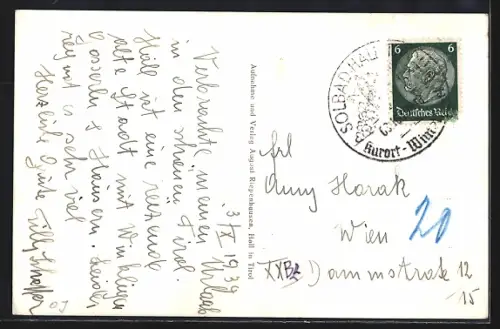 3/X 1939
Verbrachte meinen Urlaub
in den schönen Tirol.
Hall ist eine reizende
alte Stadt mit Winkeln
Gasserln & Häusern. Leider
regnet's sehr viel
Herzliche Grüße
Aufnahme und Verlag August Riepenhausen, Hall in Tirol
SOLBAD HALL
Kurort - Win
6 6
Deutsches Reich
Frl
Anny Horak
Wien
20
XXBz Dammstraße 12
15